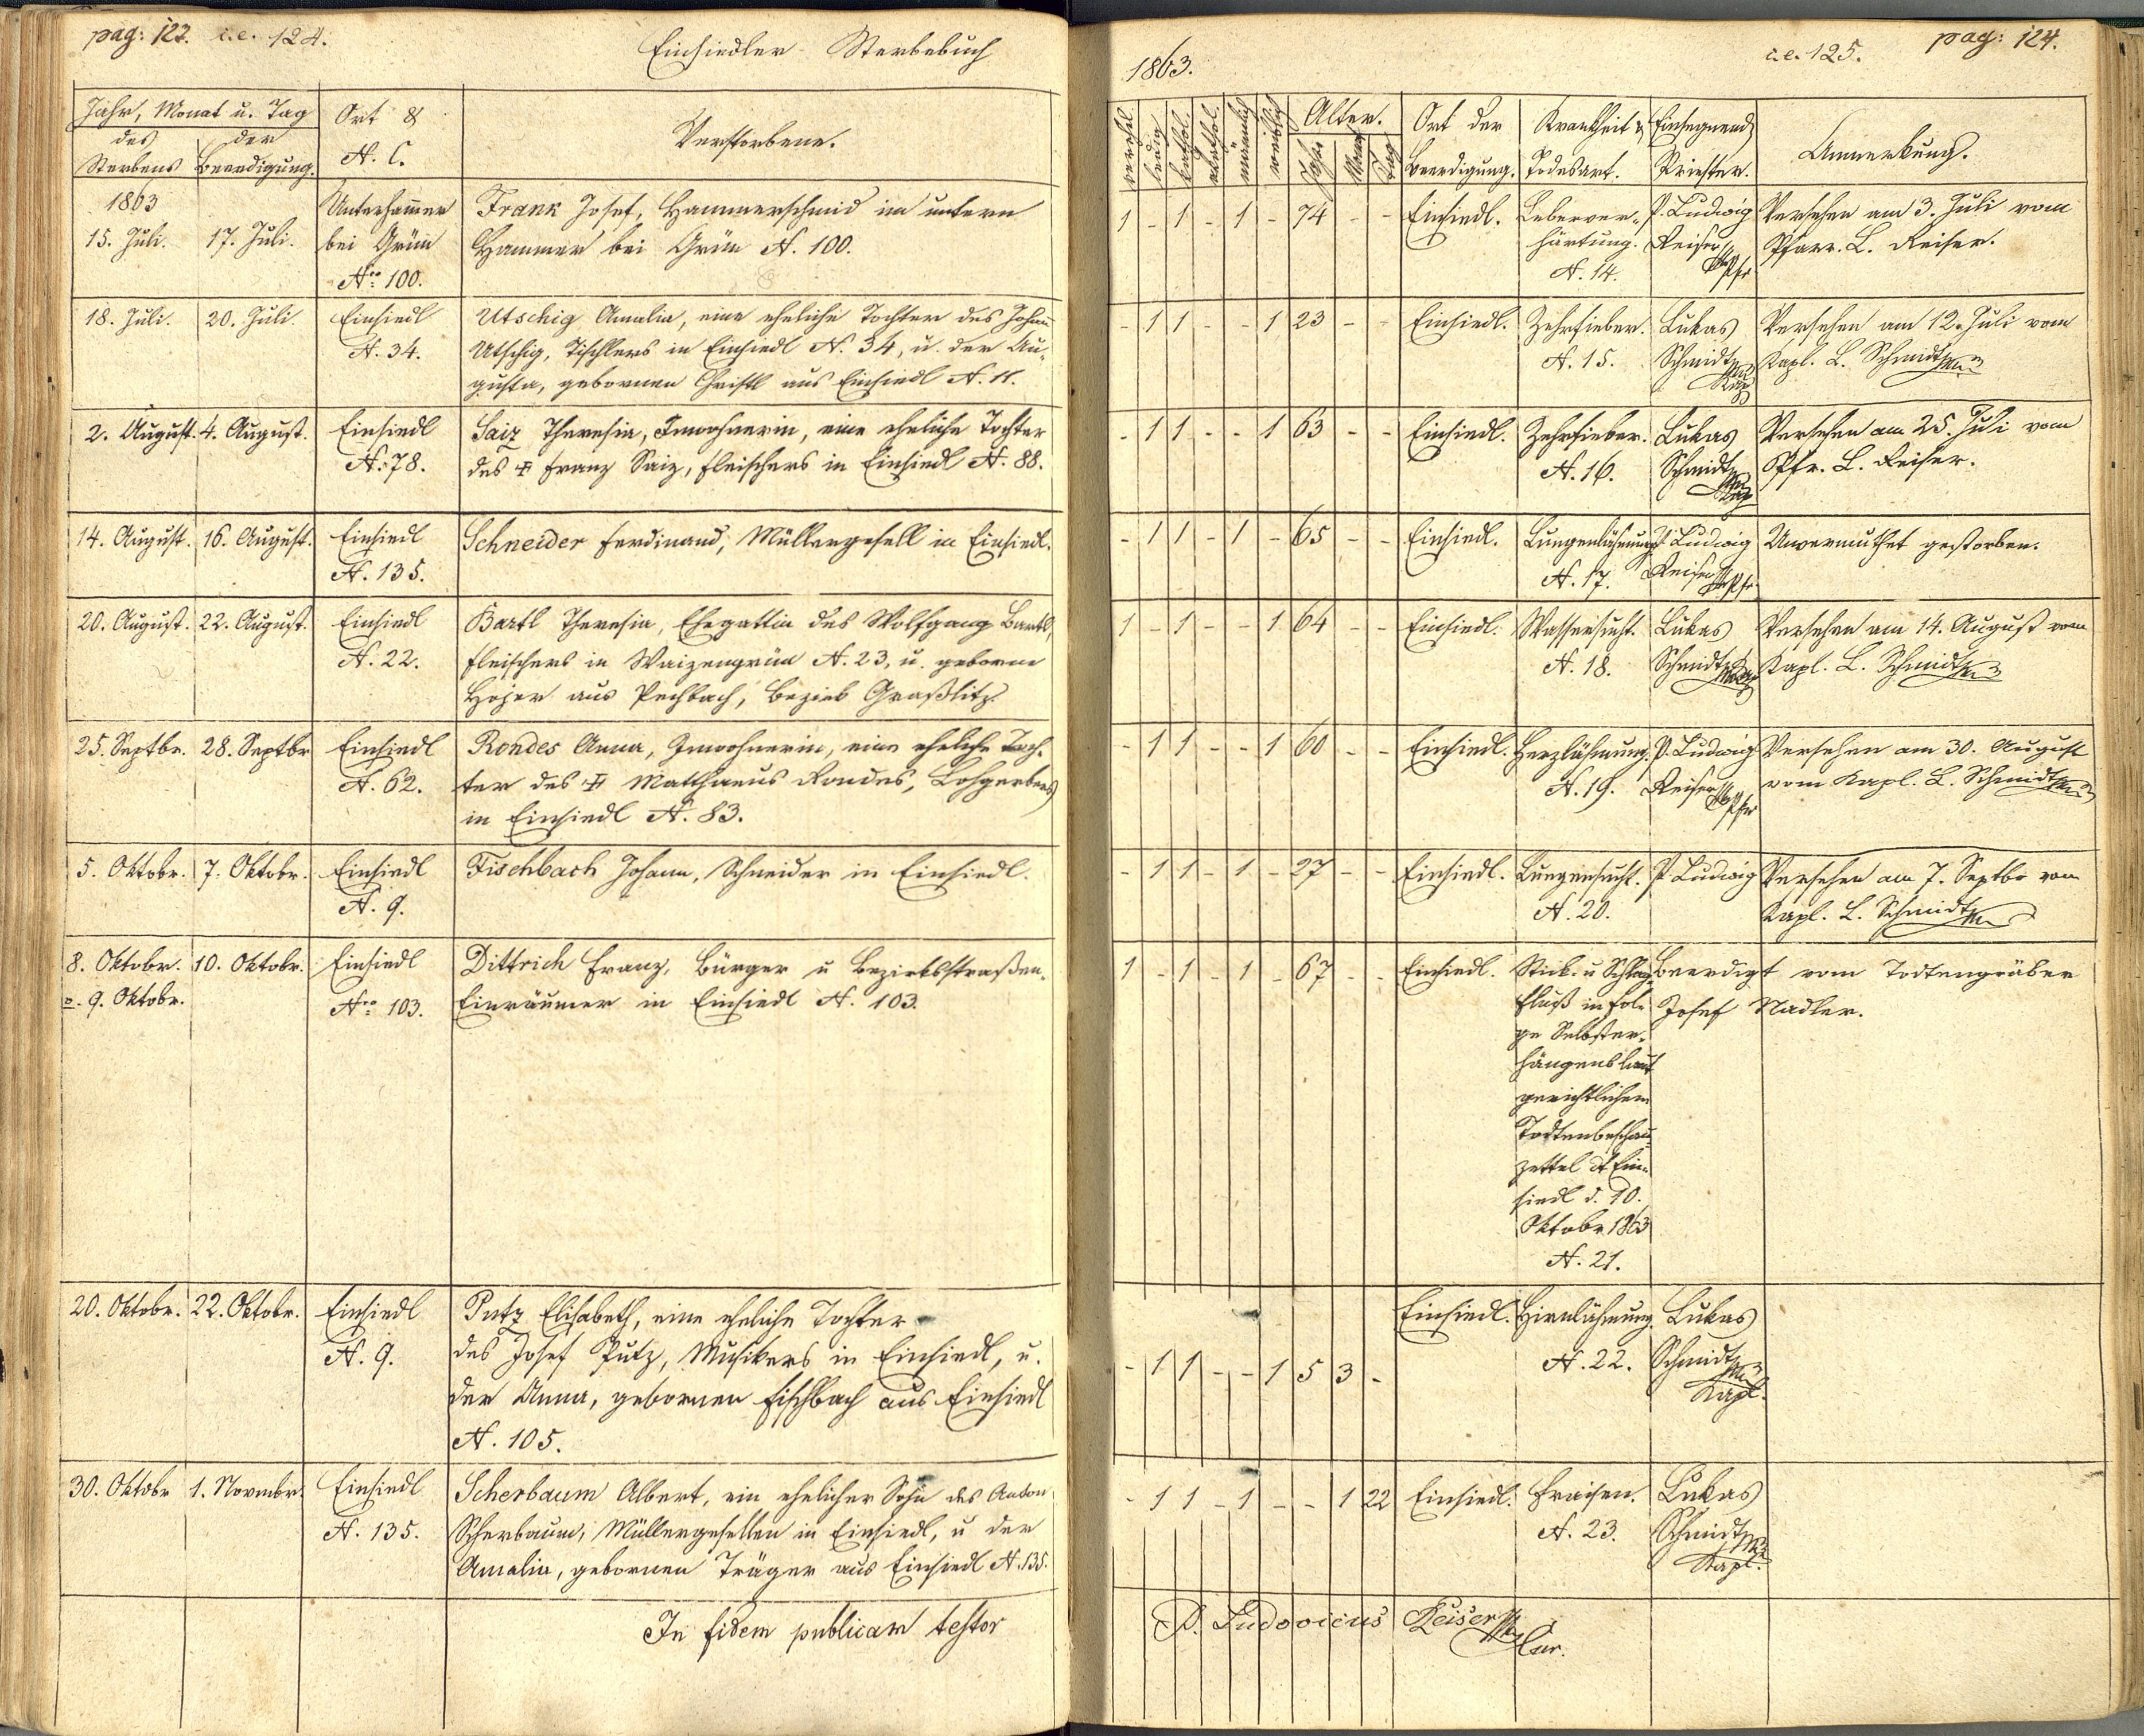 pag: 123. i.e. 124.
Einsiedler Sterbebuch
Jahr, Monat u. Tag
des Sterbens
der Beerdigung.
Ort &
N. C.
Verstorbene.
1863
15. Juli. 17. Juli.
Unterham̅er
bei Grün
Nro 100.
Frank Josef, Hammerschmid im untern
Hammer bei Grün N. 100.
18. Juli. 20. Juli
Einsiedl
N. 34.
Utschig Amalia, eine eheliche Tochter des Johann
Utschig, Tischlers in Einsiedl N. 34, u. der Au-
gusta, gebornen Christl aus Einsiedl N. 11.
2. August. 4. August.
Einsiedl
N. 78.
Saiz Theresia, Inwohnerin, eine eheliche Tochter
des ✝ Franz Saiz, Fleischers in Einsiedl N. 88.
14. August. 16. August.
Einsiedl
N. 135.
Schneider Ferdinand, Müllergesell in Einsiedl.
20. August. 22. August.
Einsiedl
N. 22.
Bartl Theresia, Ehegattin des Wolfgang Bartl,
Fleischers in Waizengrün N. 23, u. geborne
Hojer aus Pechbach, Bezirk Graßlitz.
25. Septbr. 28. Septbr
Einsiedl
N. 62.
Rondes Anna, Inwohnerin, eine eheliche Toch-
ter des ✝ Matthaeus Rondes, Lohgerbers
in Einsiedl N. 83.
5. Oktobr. 7. Oktobr.
Einsiedl
N. 9.
Fischbach Johann, Schneider in Einsiedl.
8. Oktobr. 10. Oktobr.
o. 9. Oktobr.
Einsiedl
Nro 103.
Dittrich Franz, Bürger u Bezirksstraßen-
Einräumer in Einsiedl N. 103.
20. Oktobr. 22. Oktobr.
Einsiedl
N. 9.
Putz Elisabeth, eine eheliche Tochter
des Josef Putz, Musikers in Einsiedl, u.
der Anna, gebornen Fischbach aus Einsiedl
N. 105.
30. Oktobr 1. Novmbr.
Einsiedl
N. 135.
Scherbaum Albert, ein ehelicher Sohn des Anton
Scherbaum, Müllergesellen in Einsiedl, u der
Amalia, gebornen Träger aus Einsiedl N. 135.
In fidem publicam testor
1863.
i.e. 125.
pag: 124.
verehel.
ledig
kathol.
akathol.
männlich
weiblich
Alter.
Jahr
Monat
Tag
Ort der
Beerdigung.
Krankheit &
Todesart.
Einsegnend
Priester.
Anmerkung.
1 - 1 - 1 - 74 - -
Einsiedl.
Leberver-
härtung.
N. 14.
P. Ludwig
Reiser
Pfr
Versehen am 3. Juli vom
Pfarr. L. Reiser.
- 1 1 - - 1 23 - -
Einsiedl.
Zehrfieber.
N. 15.
Lukas
Schmidt
Kap
Versehen am 12. Juli vom
Kapl. L. Schmidt
- 1 1 - - 1 63 - -
Einsiedl.
Zehrfieber.
N. 16.
Lukas
Schmidt
Kap
Versehen am 25. Juli vom
Pfr. L. Reiser.
- 1 1 - 1 - 65 - -
Einsiedl.
Lungenlähmung
N. 17.
P. Ludwig
Reiser
Pfr
Unvermuthet gestorben.
1 - 1 - - 1 64 - -
Einsiedl.
Wassersucht.
N. 18.
Lukas
Schmidt
Versehen am 14. August vom
Kapl. L. Schmidt
- 1 1 - - 1 60 - -
Einsiedl.
Herzlähmung.
N. 19.
P. Ludwig
Reiser
Pfr
Versehen am 30. August
vom Kapl. L. Schmidt
- 1 1 - 1 - 27 - -
Einsiedl.
Lungensucht.
N. 20.
P. Ludwig
Versehen am 7. Septbr vom
Kapl. L. Schmidt
1 - 1 - 1 - 67 - -
Einsiedl.
Stick- u Schlag-
fluß in Fol-
ge Selbster-
hängens laut
gerichtlichem
Todtenbeschau-
zettel dt Ein-
siedl d. 10.
Oktobr 1863
N. 21.
Beerdigt vom Todtengräber
Josef Nadler.
- 1 1 - - 1 5 3 -
Einsiedl.
Hirnlähmung.
N. 22.
Lukas
Schmidt
Kapl.
- 1 1 - 1 - - 1 22
Einsiedl.
Fraisen.
N. 23.
Lukas
Schmidt
Kapl.
P. Ludovicus Reiser
Cur.